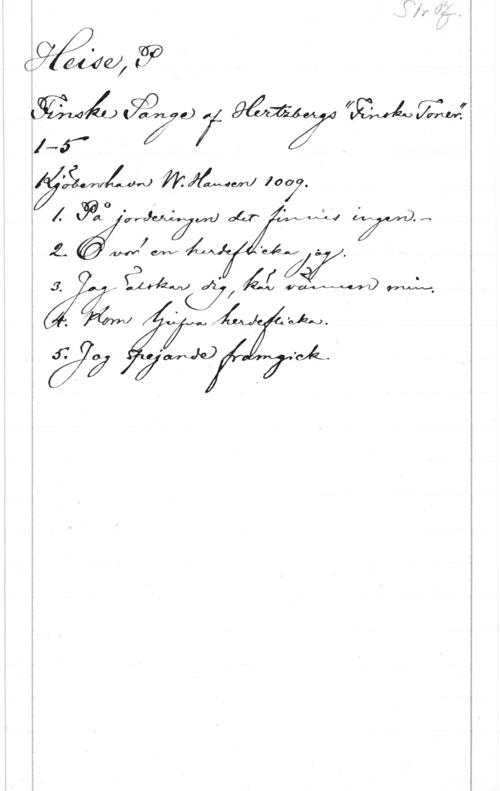 Heise, P
Finske Sange af Hertzbergs "Finska Toner".
1-5
Kjöbenhavn W. Hansen 1009.
1. På jorderingen det finnes ingen.-
2. O vor' en herdeflicka jag.
3. Jag älskar dig, kär vännen min.
4. Kom ljufva herdeflicka.
5. Jag spejande framgick.